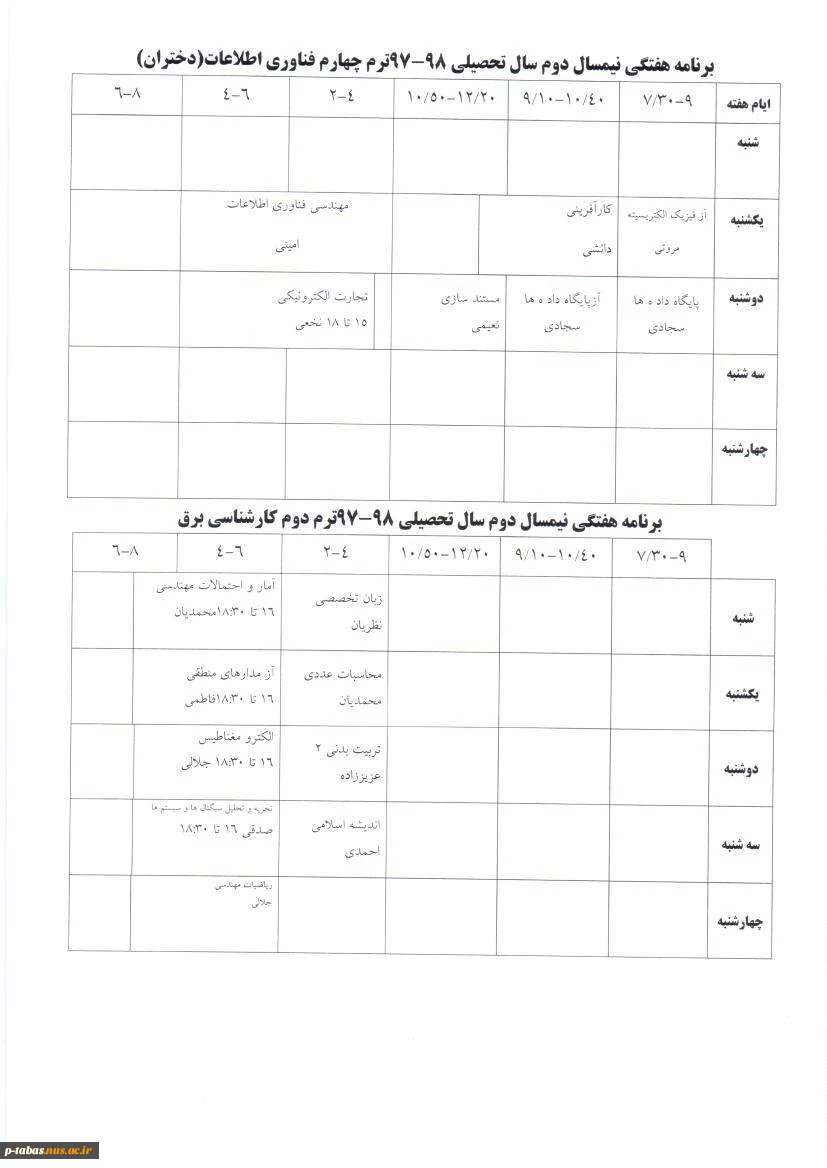 برنامه هفتگی نیمسال دوم سال تحصیلی ۹۸-۹۷ترم چهارم فناوری اطلاعات(دختران)
ایام هفته ۷/۳۰-۹ ۹/۱۰-۱۰/٤۰ ۱۰/۵۰-۱۲/۲۰ ۲-٤ ٤-٦ ٦-۸
شنبه
یکشنبه
از فیزیک الکتریسیته
مروتی
کارآفرینی
دانشی
مهندسی فناوری اطلاعات
امینی
دوشنبه
پایگاه داد ه ها
سجادی
آزپایگاه داد ه ها
سجادی
مستند سازی
نعیمی
تجارت الکترونیکی
۱۵ تا ۱۸ نخعی
سه شنبه
چهارشنبه
برنامه هفتگی نیمسال دوم سال تحصیلی ۹۸-۹۷ترم دوم کارشناسی برق
۷/۳۰-۹ ۹/۱۰-۱۰/٤۰ ۱۰/۵۰-۱۲/۲۰ ۲-٤ ٤-٦ ٦-۸
شنبه
زبان تخصصی
نظریان
آمار و احتمالات مهندسی
۱٦ تا ۱۸:۳۰محمدیان
یکشنبه
محاسبات عددی
محمدیان
آز مدارهای منطقی
۱٦ تا ۱۸:۳۰فاطمی
دوشنبه
تربیت بدنی ۲
عزیززاده
الکترو مغناطیس
۱٦ تا ۱۸:۳۰ جلالی
سه شنبه
اندیشه اسلامی
احمدی
تجزیه و تحلیل سیگنال ها و سیستم ها
صدقی ۱٦ تا ۱۸:۳۰
چهارشنبه
ریاضیات مهندسی
جلالی
p-tabas.nus.ac.ir